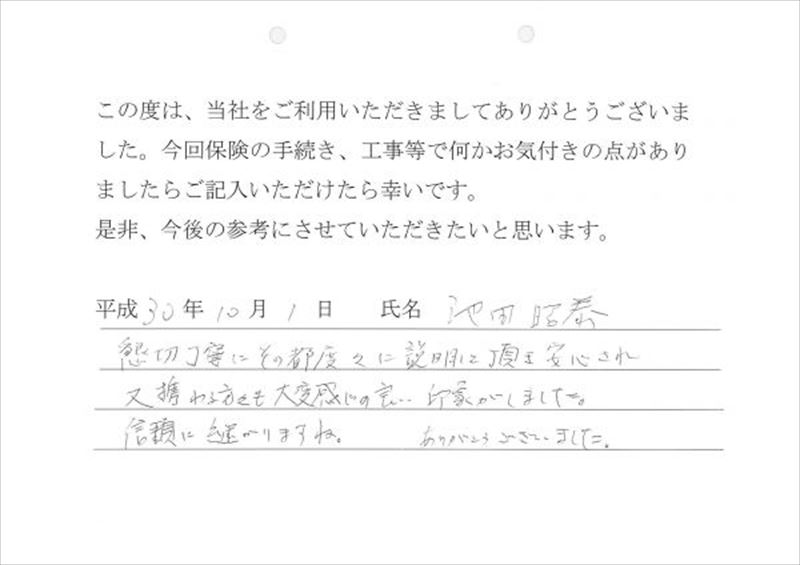 この度は、当社をご利用いただきましてありがとうございま
した。今回保険の手続き、工事等で何かお気付きの点があり
ましたらご記入いただけたら幸いです。
是非、今後の参考にさせていただきたいと思います。
平成 30 年 10 月 1 日 氏名 池田昭泰
懇切丁寧にその都度々に説明に頂き安心され
又携わる方々も大変感じの良い印象がしました。
信頼に繋がりますね。 ありがとうございました。